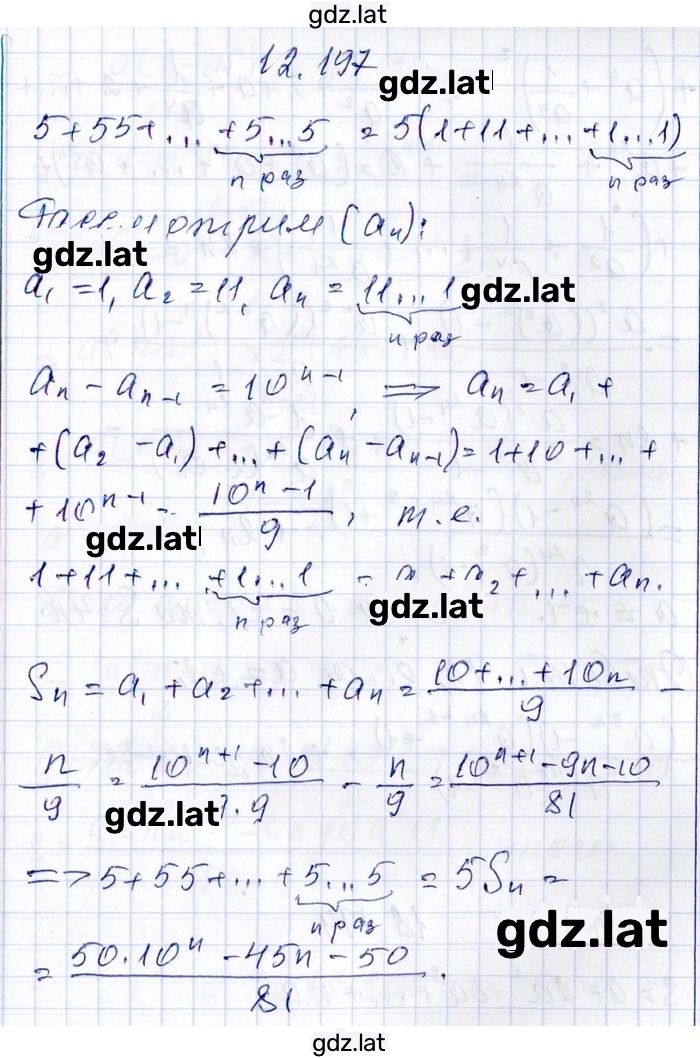 gdz.lat
12.197
gdz.lat
5+55+...+5...5 = 5(1+11+...+1...1)
n раз n раз
Рассмотрим (aₙ):
gdz.lat
a₁=1, a₂=11, aₙ = 11...1
gdz.lat
n раз
aₙ - aₙ₋₁ = 10ⁿ⁻¹, ⟹ aₙ = a₁ +
+(a₂ - a₁)+...+(aₙ - aₙ₋₁) = 1+10+...+
+10ⁿ⁻¹ = (10ⁿ - 1)/9, т.е.
gdz.lat
1+11+...+1...1 = a₁+a₂+...+aₙ.
n раз
gdz.lat
Sₙ = a₁+a₂+...+aₙ = (10+...+10n)/9 -
n/9 = (10ⁿ⁺¹ - 10)/9·9 - n/9 = (10ⁿ⁺¹ - 9n - 10)/81
gdz.lat
=> 5+55+...+5...5 = 5Sₙ =
n раз
gdz.lat
= (50·10ⁿ - 45n - 50)/81.
gdz.lat